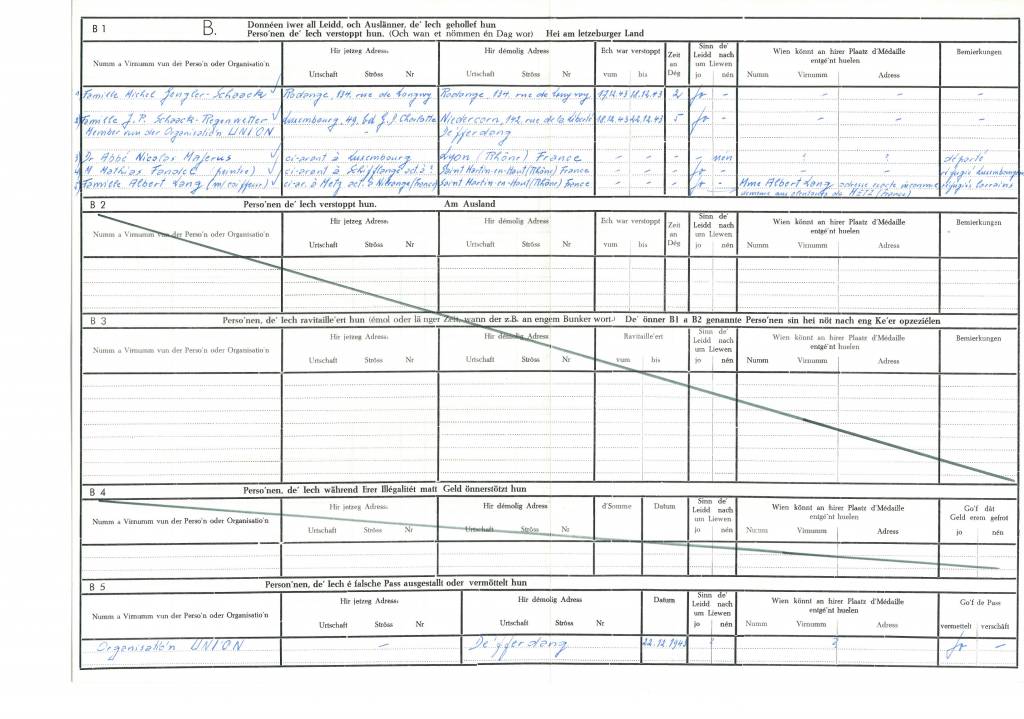 B 1 B. Donnéen iwer all Leidd, och Auslänner, de' Iech gehollef hun
Perso'nen de' Iech verstoppt hun. (Och wan et nömmen én Dag wor) Hei am letzeburger Land
Numm a Virnumm vun der Perso'n oder Organisatio'n
Hir jetzeg Adress:
Urtschaft Ströss Nr
Hir démolig Adress:
Urtschaft Ströss Nr
Ech war verstoppt
vum bis
Zeit an Dég
Sinn de' Leidd nach um Liewen
jo nén
Wien könnt an hirer Plaatz d'Médaille entgé'nt huelen
Numm Virnumm Adress
Bemierkungen
Famille Michel Jengler-Schaack Rodange, 134, rue de Longwy Rodange, 134, rue de Longwy 17.12.43 18.12.43 2 Jo - - - -
Famille J.P. Schaack-Regenwetter Luxembourg, 49, bd G.D. Charlotte Niedercorn, 142, rue de la Liberté 18.12.43 22.12.43 5 Jo - - - -
Member vun der Organisatio'n UNION De'fferdang
Dr Abbé Nicolas Majerus ci-avant à Luxembourg Lyon (Rhône) France - - - - nén ? ? déporté
M Mathias Fandel peintre) ci-avant à Schifflange act. à ? Saint Martin-en-Haut (Rhône) France - - - Jo - réfugié Luxembourgeois
Famille Albert Lang (m coiffeur) ci-av. à Metz act. à (France) Saint Martin-en-Haut (Rhône) France - - - Jo - Mme Albert Lang adresse exacte inconnue réfugiés Lorrains
demeure aux alentours de METZ (France)
B 2 Perso'nen de' Iech verstoppt hun. Am Ausland
Numm a Virnumm vun der Perso'n oder Organisatio'n
Hir jetzeg Adress:
Urtschaft Ströss Nr
Hir démolig Adress:
Urtschaft Ströss Nr
Ech war verstoppt
vum bis
Zeit an Dég
Sinn de' Leidd nach um Liewen
jo nén
Wien könnt an hirer Plaatz d'Médaille entgé'nt huelen
Numm Virnumm Adress
Bemierkungen
B 3 Perso'nen, de' Iech ravitaille'ert hun (émol oder länger Zeit, wann der z.B. an engem Bunker wort.) De' önner B1 a B2 genannte Perso'nen sin hei nöt nach eng Ke'er opzeziélen
Numm a Virnumm vun der Perso'n oder Organisatio'n
Hir jetzeg Adress:
Urtschaft Ströss Nr
Hir démolig Adress
Urtschaft Ströss Nr
Ravitaille'ert
vum bis
Sinn de' Leidd nach um Liewen
jo nén
Wien könnt an hirer Plaatz d'Médaille entgé'nt huelen
Numm Virnumm Adress
Bemierkungen
B 4 Perso'nen, de' Iech während Erer Illégalitét matt Geld önnerstötzt hun
Numm a Virnumm vun der Perso'n oder Organisatio'n
Hir jetzeg Adress:
Urtschaft Ströss Nr
Hir démolig Adress
Urtschaft Ströss Nr
d'Somme
Datum
Sinn de' Leidd nach um Liewen
jo nén
Wien könnt an hirer Plaatz d'Médaille entgé'nt huelen
Numm Virnumm Adress
Go'f dät Geld erem gefrot
jo nén
B 5 Person'nen, de' Iech é falsche Pass ausgestallt oder vermöttelt hun
Numm a Virnumm vun der Perso'n oder Organisatio'n
Hir jetzeg Adress:
Urtschaft Ströss Nr
Hir démolig Adress:
Urtschaft Ströss Nr
Datum
Sinn de' Leidd nach um Liewen
jo nén
Wien könnt an hirer Plaatz d'Médaille entgé'nt huelen
Numm Virnumm Adress
Go'f de Pass
vermettelt verschäft
Organisatio'n UNION - De'fferdang 22.12.1943 ? ? Jo -